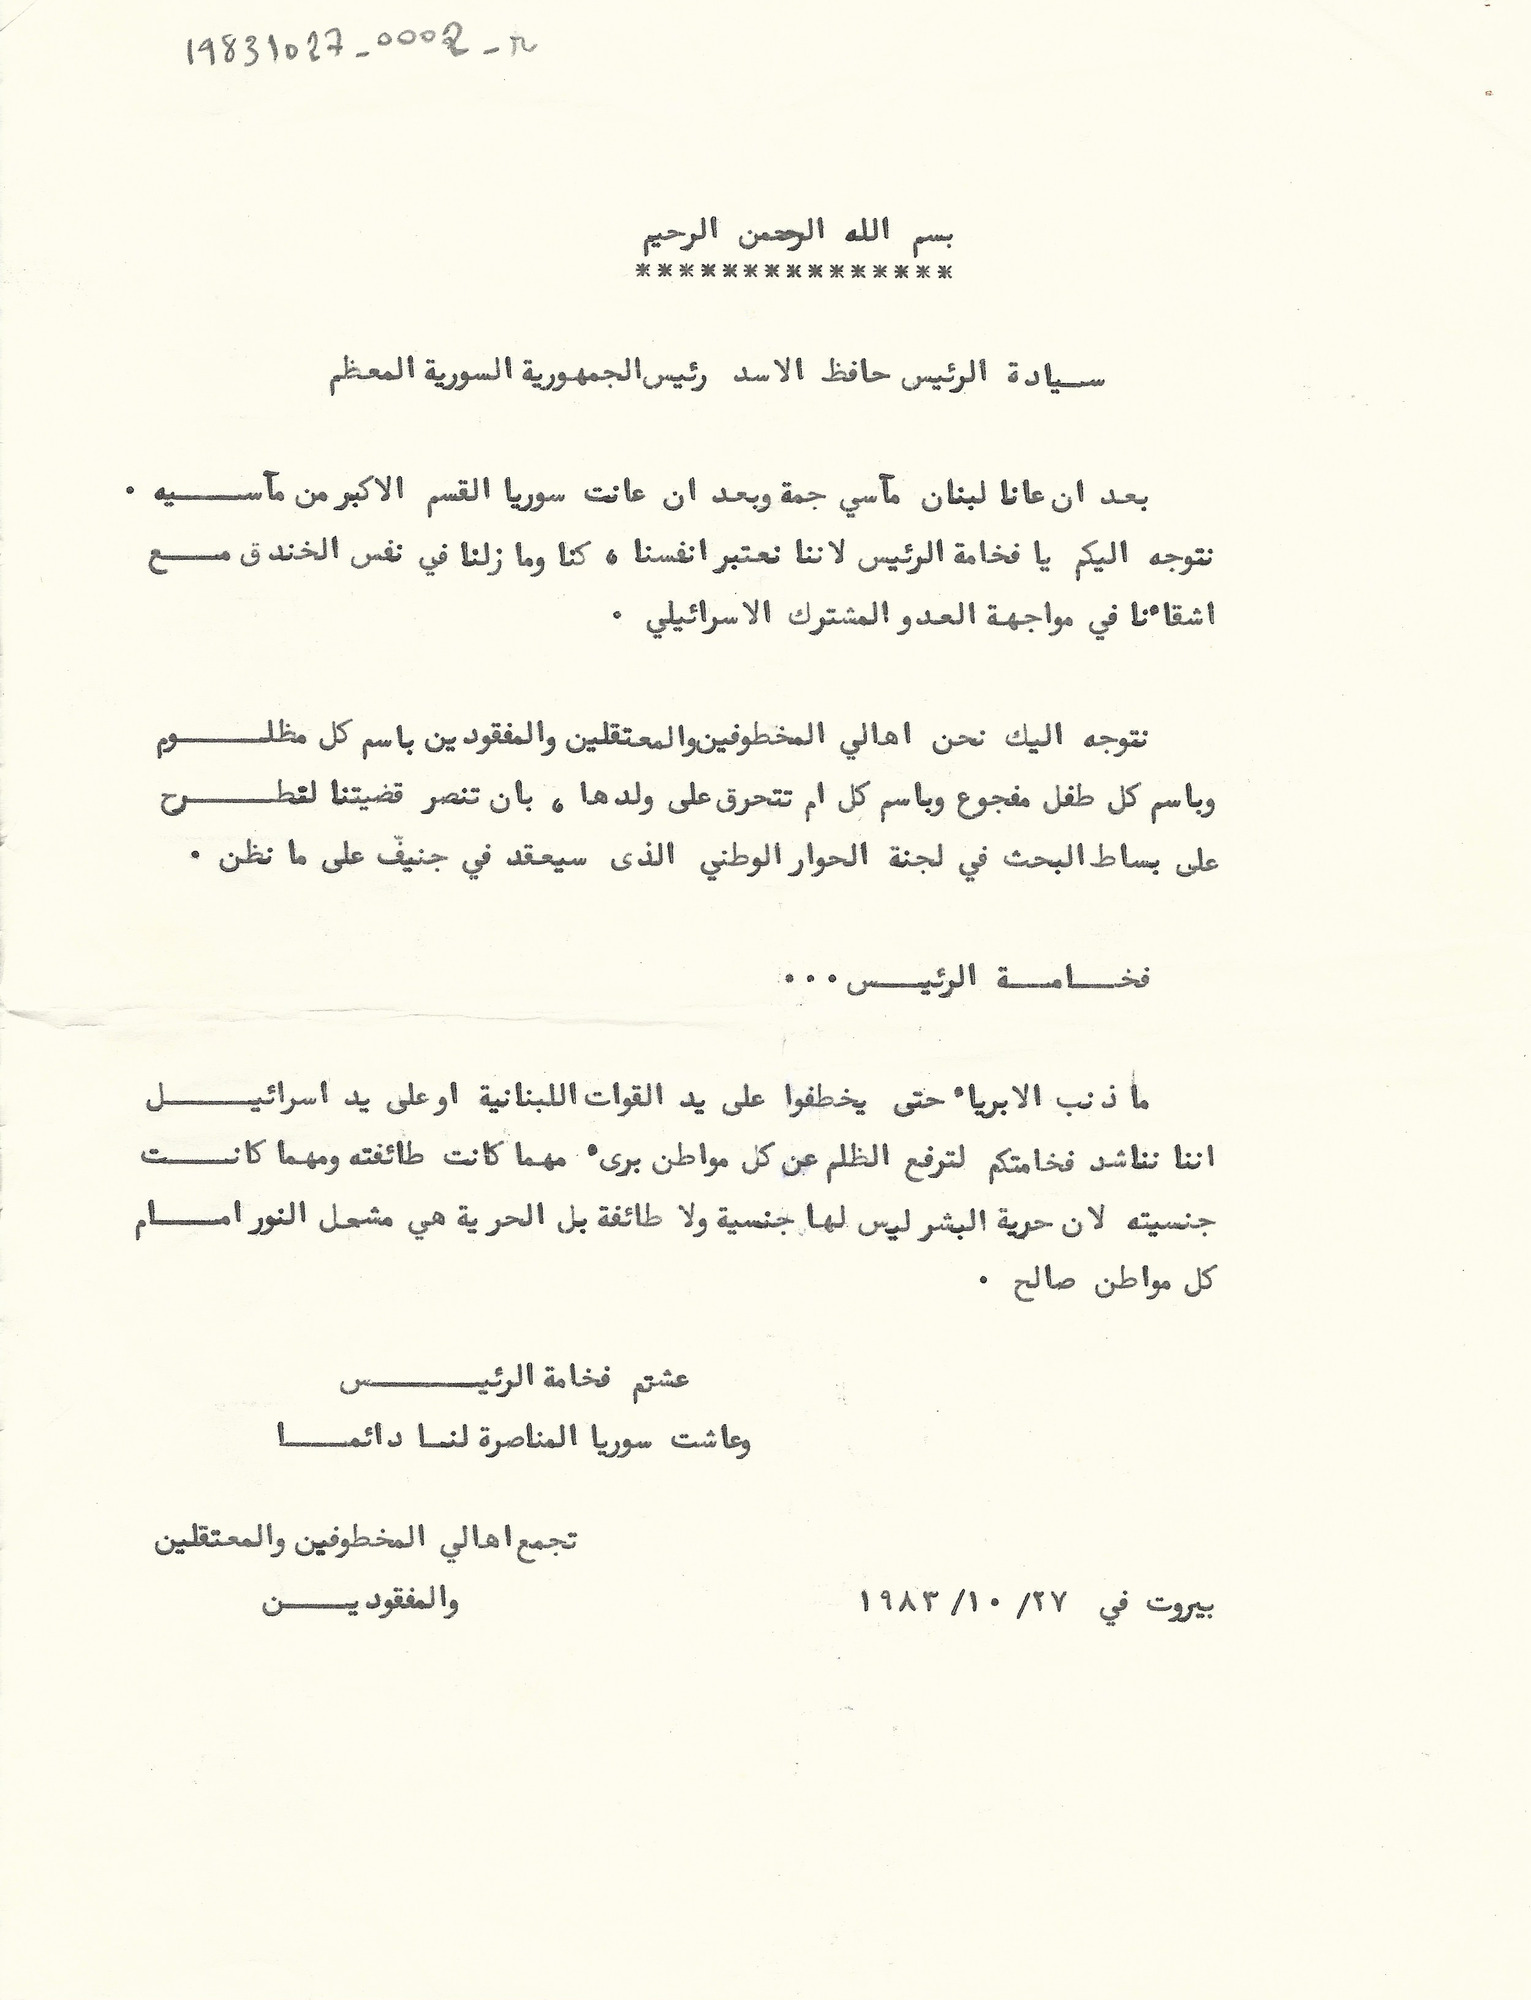 19831027_0002_r
بسم الله الرحمن الرحيم
***************
سـيادة الرئيس حافظ الاسد رئيس الجمهورية السورية المعظم
بعد ان عانا لبنان مآسي جمة وبعد ان عانت سوريا القسم الاكبر من مآســـيه .
نتوجه اليكم يا فخامة الرئيس لاننا نعتبر انفسنا ، كنا وما زلنا في نفس الخندق مــع
اشقاءنا في مواجهة العدو المشترك الاسرائيلي .
نتوجه اليك نحن اهالي المخطوفين والمعتقلين والمفقودين باسم كل مظلـــوم
وباسم كل طفل مفجوع وباسم كل ام تتحرق على ولدها ، بان تنصر قضيتنا لتطـــرح
على بساط البحث في لجنة الحوار الوطني الذى سيعقد في جنيفّ على ما نظن .
فخـامـة الرئيـس ...
ما ذنب الابرياء حتى يخطفوا على يد القوات اللبنانية او على يد اسرائيـــل
اننا نناشد فخامتكم لترفع الظلم عن كل مواطن برىء مهما كانت طائفته ومهما كانـــت
جنسيته لان حرية البشر ليس لها جنسية ولا طائفة بل الحرية هي مشعل النور امـــام
كل مواطن صالح .
عشتم فخامة الرئيــــس
وعاشت سوريا المناصرة لنـا دائمـــا
تجمع اهالي المخطوفين والمعتقلين
والمفقوديـــن
بيروت في ٢٧/ ١٠/ ١٩٨٣